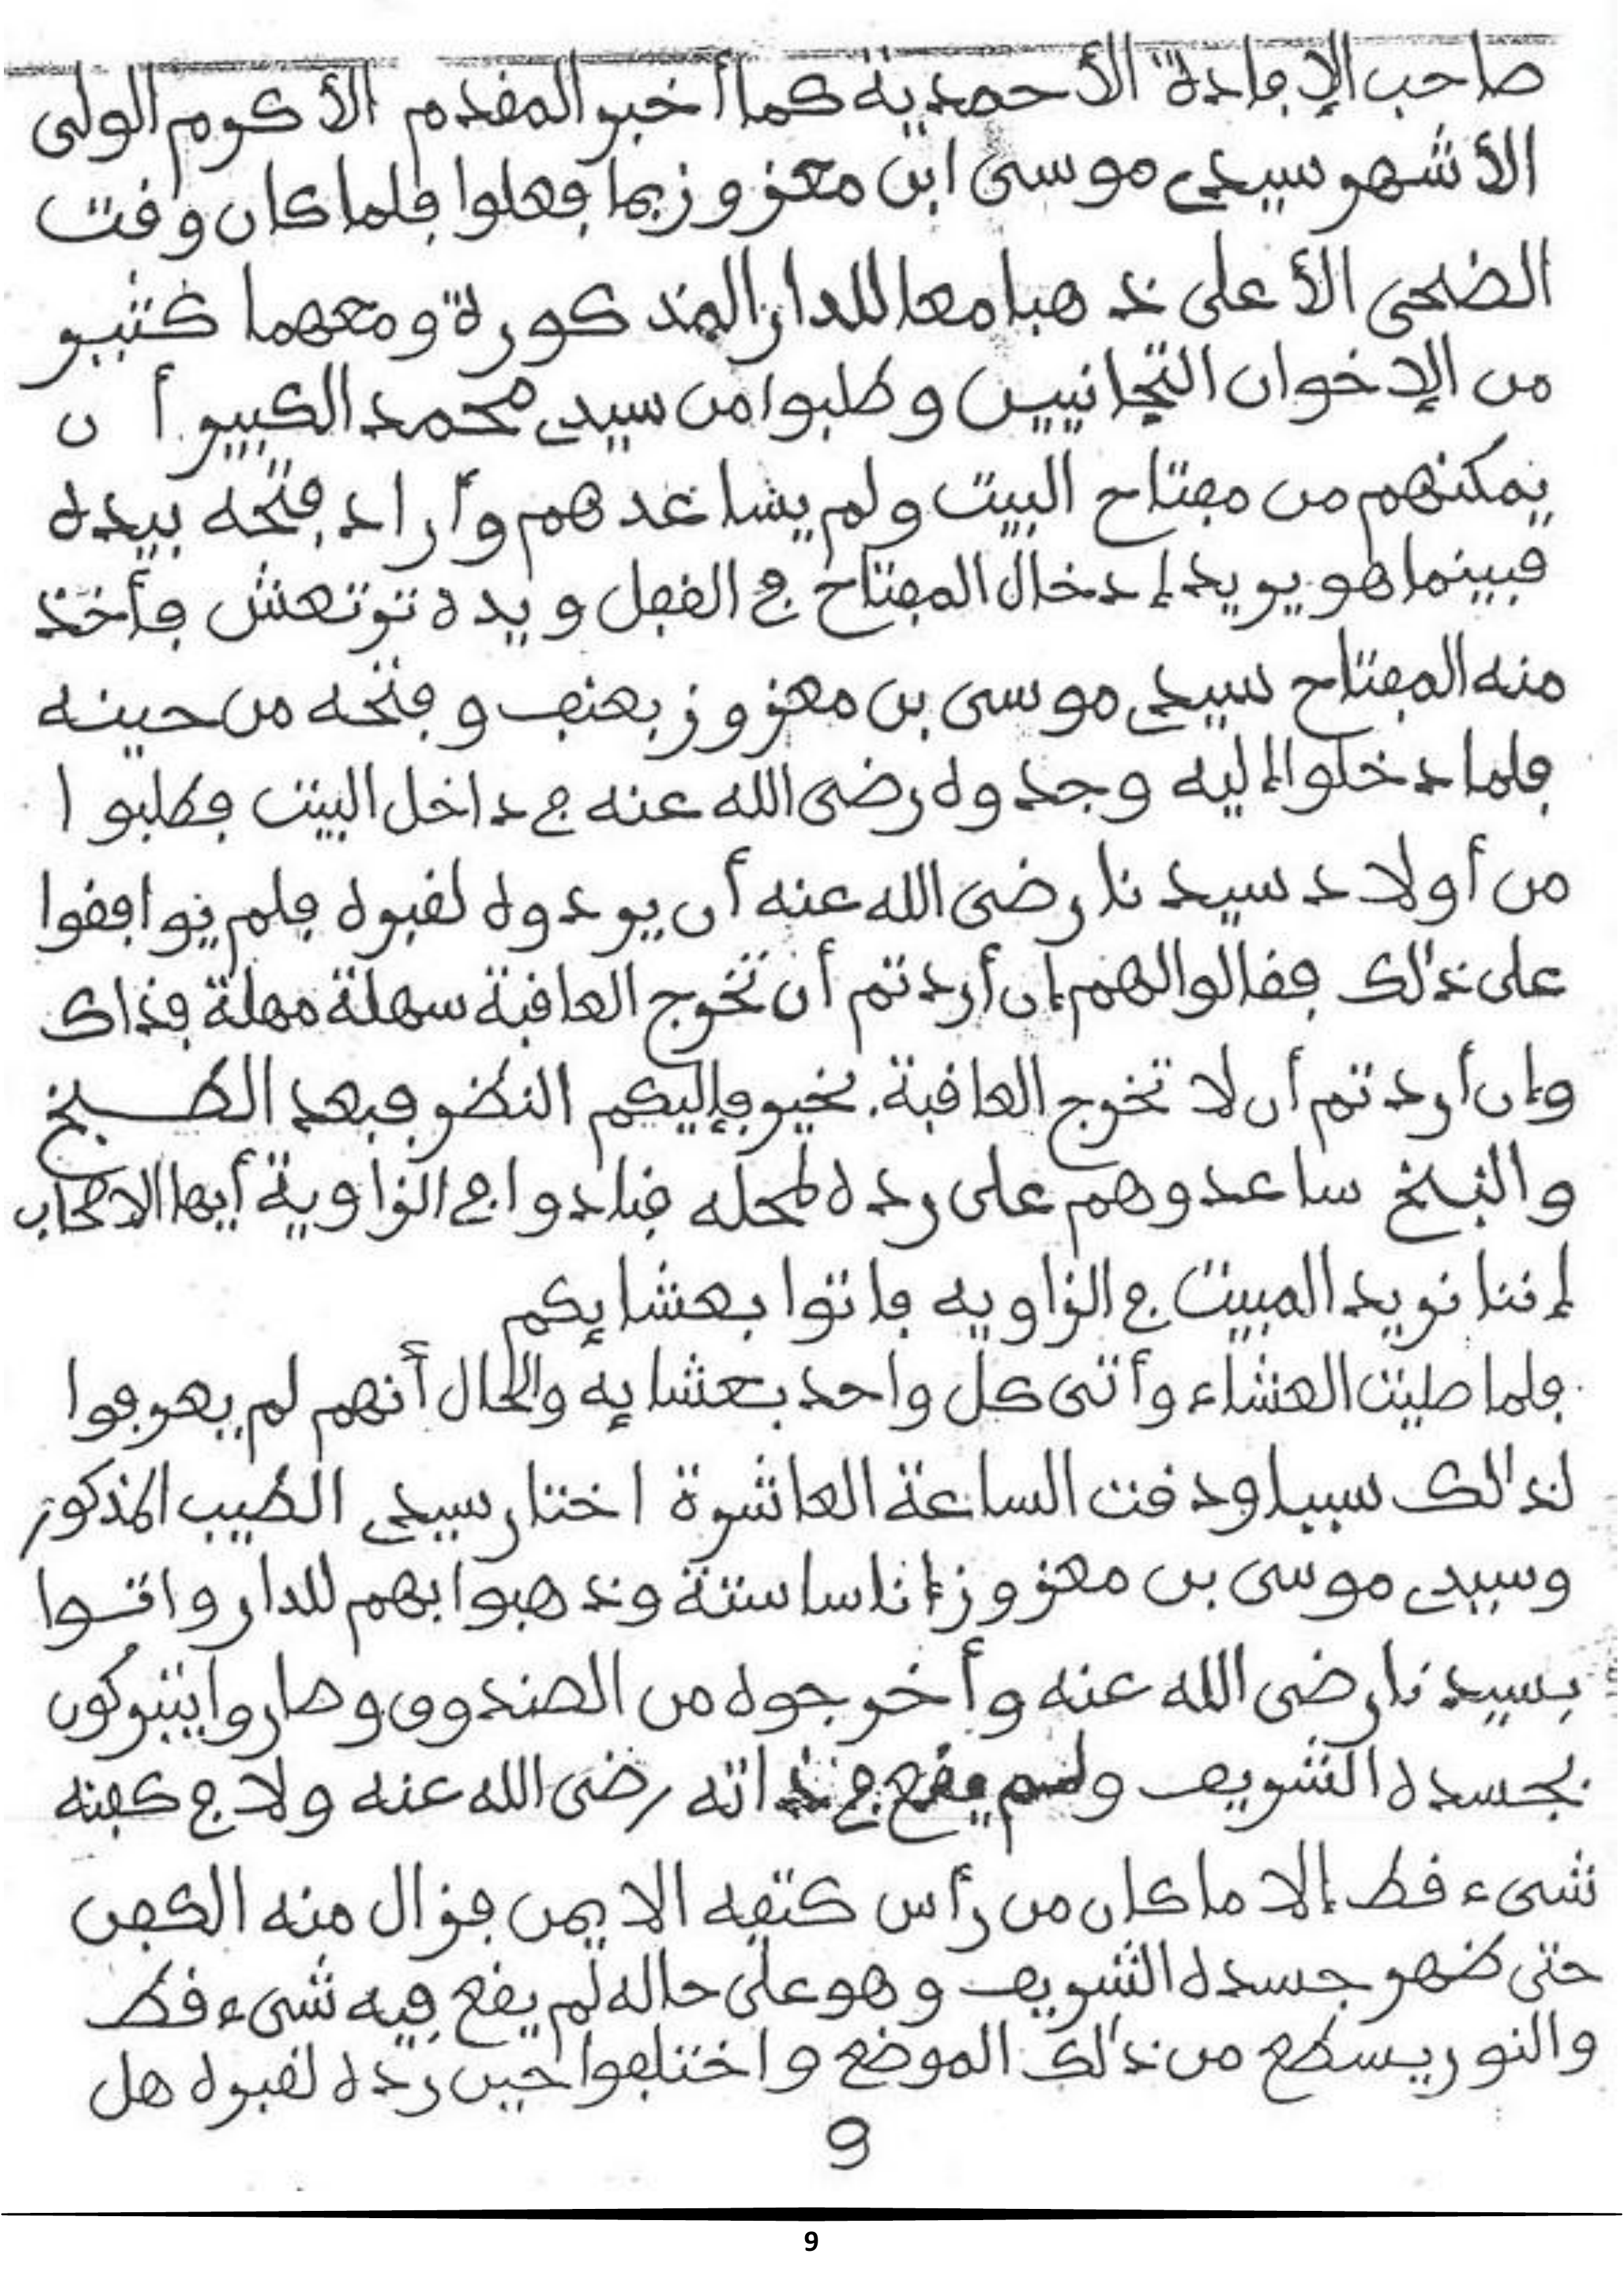 صاحب الإفادة الأحمدية كما أخبر المقدم الأكرم الولى
الأشهر سيدى موسى ابن معزوز بما فعلوا فلما كان وقت
الضحى الأعلى ذهبا معا للدار المذكورة ومعهما كثير
من الإخوان التجانيين وطلبوا من سيدى محمد الكبير أن
يمكنهم من مفتاح البيت ولم يساعدهم وأراد فتحه بيده
فبينما هو يريد إدخال المفتاح في القفل ويده ترتعش فأخذ
منه المفتاح سيدى موسى بن معزوز بعنف وفتحه من حينه
فلما دخلوا إليه وجدوه رضى الله عنه في داخل البيت فطلبوا
من أولاد سيدنا رضى الله عنه أن يردوه لقبره فلم يوافقوا
على ذلك فقالوا لهم إن أردتم أن تخرج العاقبة سهلة مهلة فذاك
وإن أردتم أن لا تخرج العاقبة بخير فإليكم النظر فبعد الطبخ
والنبخ ساعدوهم على رده لمحله فنادوا في الزاوية أيها الاصحاب
إننا نريد المبيت في الزاويه فاتوا بعشايكم
فلما صليت العشاء وأتى كل واحد بعشايه والحال أنهم لم يعرفوا
لذالك سببا ودقت الساعة العاشرة اختار سيدى الطيب المذكور
وسيدى موسى بن معزوز إناسا ستة وذهبوا بهم للدار واتوا
بسيدنا رضى الله عنه وأخرجوه من الصندوق وصاروا يتبركون
بجسده الشريف ولم يقع في ذاته رضى الله عنه ولا في كفنه
شىء قط إلا ما كان من رأس كتفه الايمن فزال منه الكفن
حتى ظهر جسده الشريف وهو على حاله لم يقع فيه شىء قط
والنور يسطع من ذلك الموضع واختلفوا حين رده لقبره هل
9
9